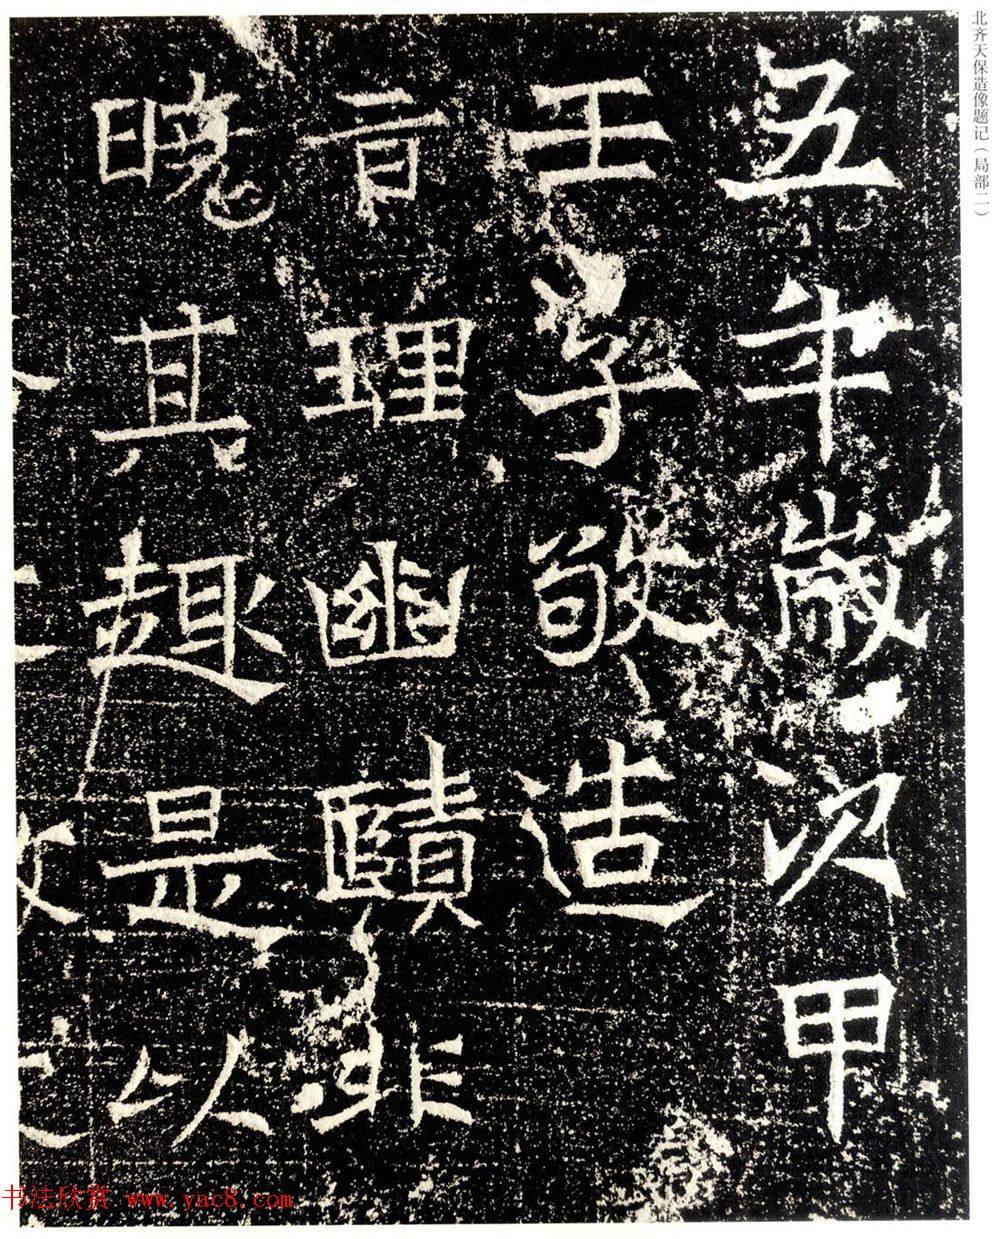 北齐天保造像题记（局部二）
五年歲次甲
壬子敬造
理幽賾非
曉其趣是以
书法欣赏 www.yac8.com